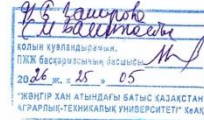 қолын куәландырамын.
ПЖЖ басқармасының басшысы
2026 ж. «25» 05
"ЖӘҢГІР ХАН АТЫНДАҒЫ БАТЫС ҚАЗАҚСТАН
АГРАРЛЫҚ-ТЕХНИКАЛЫҚ УНИВЕРСИТЕТІ" КеАҚ